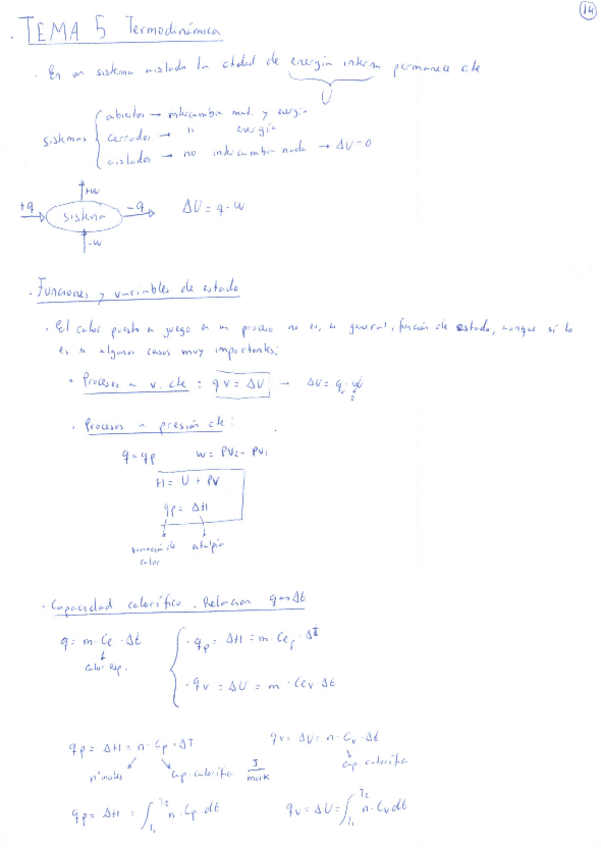 14
TEMA 5 Termodinámica
· En un sistema aislado la ctdad de energía interna permanece cte
U
sistemas
abiertos → intercambia mat. y energía
cerrados → " energía
aislados → no intercambia nada → ΔU=0
+w
+q sistema -q ΔU = q - w
-w
· Funciones y variables de estado
· El calor puesto en juego en un proceso no es, en general, función de estado, aunque sí lo
es en algunos casos muy importantes:
· Procesos a v. cte : qv = ΔU → ΔU = qv - w
· Procesos a presión cte:
q = qp w = PV2 - PV1
H = U + PV
qp = ΔH
variación de entalpía
calor
· Capacidad calorífica. Relación q en Δt
q = m · Ce · Δt
calor esp.
· qp = ΔH = m · Cep · ΔT
· qv = ΔU = m · Cev · Δt
qp = ΔH = n · Cp · ΔT qv = ΔU = n · Cv · Δt
nº moles cap. calorífica J/mol K cap. calorífica
qp = ΔH = ∫T1T2 n · Cp · dt qv = ΔU = ∫T1T2 n · Cv dt